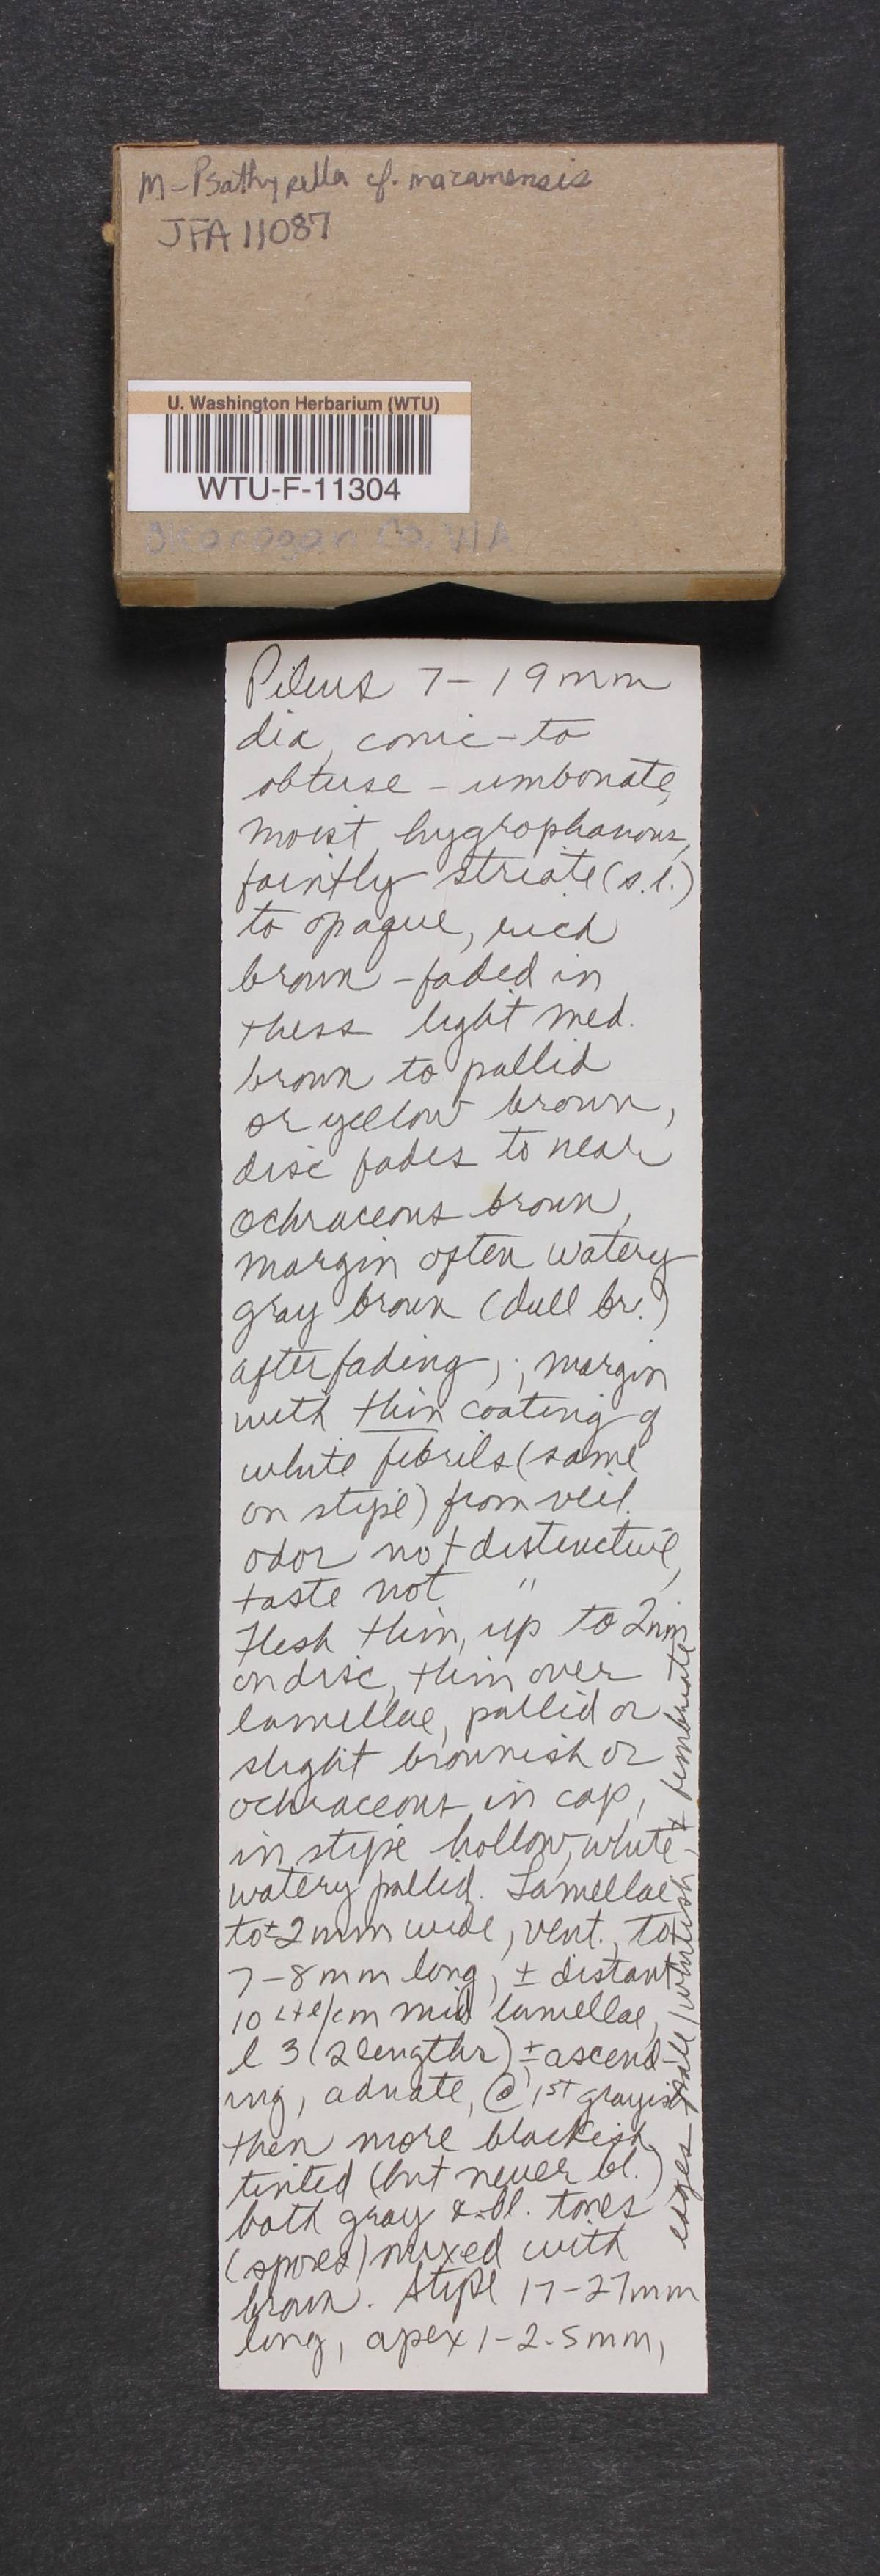 M-Psathyrella cf. mazamensis
JFA 11087
U. Washington Herbarium (WTU)
WTU-F-11304
Okanogan Co. WA
Pileus 7-19mm
dia, conic-to
obtuse-umbonate,
moist, hygrophanous,
faintly striate (s.l.)
to opaque, rich
brown - faded in
these light med.
brown to pallid
or yellow brown,
disc fades to near
ochraceous brown,
margin often watery
gray brown (dull br.)
after fading, ; margin
with thin coating of
white fibrils (same
on stipe) from veil.
odor not distinctive,
taste not "
Flesh thin, up to 2mm
on disc, thin over
lamellae, pallid or
slight brownish or
ochraceous in cap,
in stipe hollow, white
watery pallid. Lamellae
to ± 2mm wide, vent., to
7-8mm long, ± distant
10 L+l/cm mid lamellae,
l 3 (2 lengths) ± ascend-
ing, adnate, @ 1st grayish
then more blackish
tinted (but never bl.)
both gray & bl. tones
(spores) mixed with
brown. Stipe 17-27mm
long, apex 1-2.5mm,
edges pale/whitish, ± fimbriate